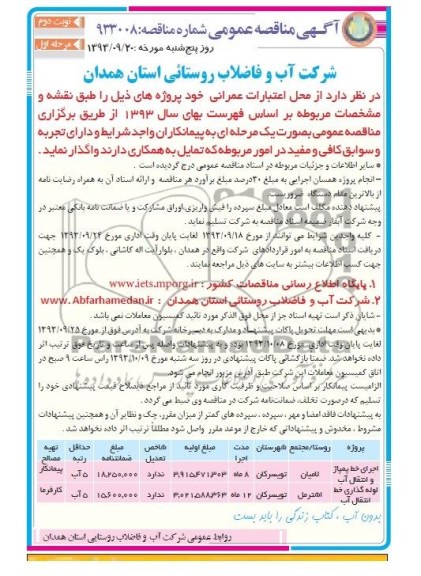 آگهی مناقصه عمومی شماره مناقصه: ۹۳۳۰۰۸
نوبت دوم
روز پنج‌شنبه مورخه: ۱۳۹۳/۰۹/۲۰
مرحله اول
شرکت آب و فاضلاب روستائی استان همدان
در نظر دارد از محل اعتبارات عمرانی خود پروژه های ذیل را طبق نقشه و
مشخصات مربوطه بر اساس فهرست بهای سال ۱۳۹۳ از طریق برگزاری
مناقصه عمومی بصورت یک مرحله ای به پیمانکاران واجد شرایط و دارای تجربه
و سوابق کافی و مفید در امور مربوطه که تمایل به همکاری دارند واگذار نماید.
* سایر اطلاعات و جزئیات مربوطه در اسناد مناقصه عمومی درج گردیده است.
– انجام پروژه همسان اجرایی به مبلغ ۳۰درصد مبلغ برآورد هر مناقصه و ارائه اسناد آن به همراه رضایت نامه
از بالاترین مقام دستگاه ضروریست.
پیشنهاد دهنده مکلف است معادل مبلغ سپرده را فیش واریزی، اوراق مشارکت و یا ضمانت نامه بانکی معتبر در
وجه شرکت آبفار ضمیمه اسناد مناقصه به شرکت تسلیم نماید.
– کلیه واجدین شرایط می توانند از مورخ ۱۳۹۳/۰۹/۱۸ لغایت پایان وقت اداری مورخ ۱۳۹۳/۰۹/۲۴ جهت
دریافت اسناد مناقصه به امور قراردادهای شرکت واقع در همدان، بلوار آیت اله کاشانی، بلوک یک و همچنین
جهت کسب اطلاعات بیشتر به سایت های ذیل مراجعه نمایند.
۱. پایگاه اطلاع رسانی مناقصات کشور: www.iets.mporg.ir
۲. شرکت آب و فاضلاب روستائی استان همدان: www.Abfarhamedan.ir
– شایان ذکر است تهیه اسناد جز از محل فوق الذکر مورد تائید کمیسیون معاملات نمی باشد.
– بدیهی است مهلت تحویل پاکات پیشنهاد و مدارک به دبیرخانه شرکت به آدرس فوق از مورخ ۱۳۹۳/۰۹/۲۵
لغایت پایان وقت اداری مورخ ۱۳۹۳/۱۰/۰۸ بوده و به پیشنهادات واصله پس از ساعت و تاریخ فوق ترتیب اثر
داده نخواهد شد. ضمنا بازگشائی پاکات پیشنهادی در روز سه شنبه مورخ ۱۳۹۳/۱۰/۰۹ راس ساعت ۹ صبح در
اتاق کمیسیون معاملات این شرکت طبق آدرس مزبور انجام می شود.
الزامیست پیمانکار بر اساس صلاحیت و ظرفیت کاری مورد تائید از مراجع ذیصلاح قیمت پیشنهادی خود را
تسلیم که درصورت تخلف، ضمانتنامه شرکت در مناقصه وی ضبط می گردد.
به پیشنهادات فاقد امضا و مهر، سپرده، سپرده های کمتر از میزان مقرر، چک و نظایر آن و همچنین پیشنهادات
مشروط، مخدوش و پیشنهاداتی که خارج از موعد مقرر واصل شود مطلقاً ترتیب اثر داده نخواهد شد.
پروژه روستا/مجتمع شهرستان مدت اجرا مبلغ اولیه شاخص تعدیل مبلغ ضمانتنامه حداقل رتبه تهیه مصالح
اجرای خط پمپاژ و انتقال آب تامیان تویسرکان ۸ ماه ۳,۹۱۵,۴۷۱,۳۰۳ ندارد ۱۸,۲۵۰,۰۰۰ ۵ آب پیمانکار
لوله گذاری خط انتقال آب اشترمل تویسرکان ۱۲ ماه ۳,۰۲۱,۵۸۸,۳۶۳ ندارد ۱۵,۶۰۰,۰۰۰ ۵ آب کارفرما
بدون آب، کتاب زندگی را باید بست
روابط عمومی شرکت آب و فاضلاب روستایی استان همدان